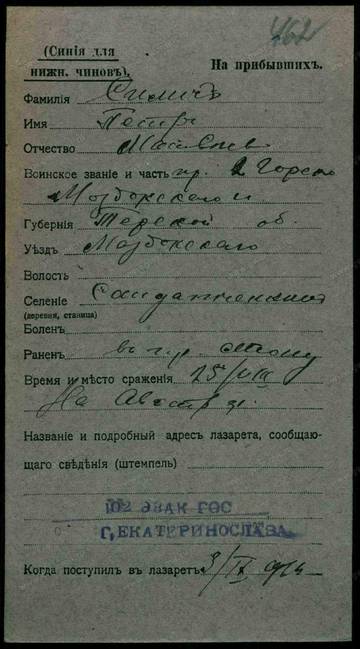 462
(Синія для
нижн. чиновъ).
На прибывшихъ.
Фамилія
Имя Петръ
Отчество
Воинское званіе и часть пр. 2 Горско
Моздокскаго п
Губернія Терской об.
Уѣздъ Моздокскаго
Волость
Селеніе
(деревня, станица)
Боленъ
Раненъ в пр. стопу
Время и мѣсто сраженія 25/VIII
На Австр
Названіе и подробный адресъ лазарета, сообщаю-
щаго свѣдѣнія (штемпель)
102 ЭВАК ГОС
Г, ЕКАТЕРИНОСЛАВА
Когда поступилъ въ лазаретъ 3/IX 914